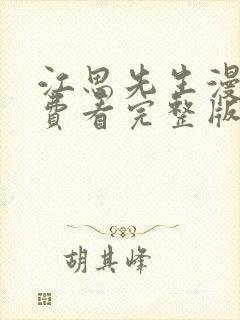 江思先生漫
费看完整版
胡其峰